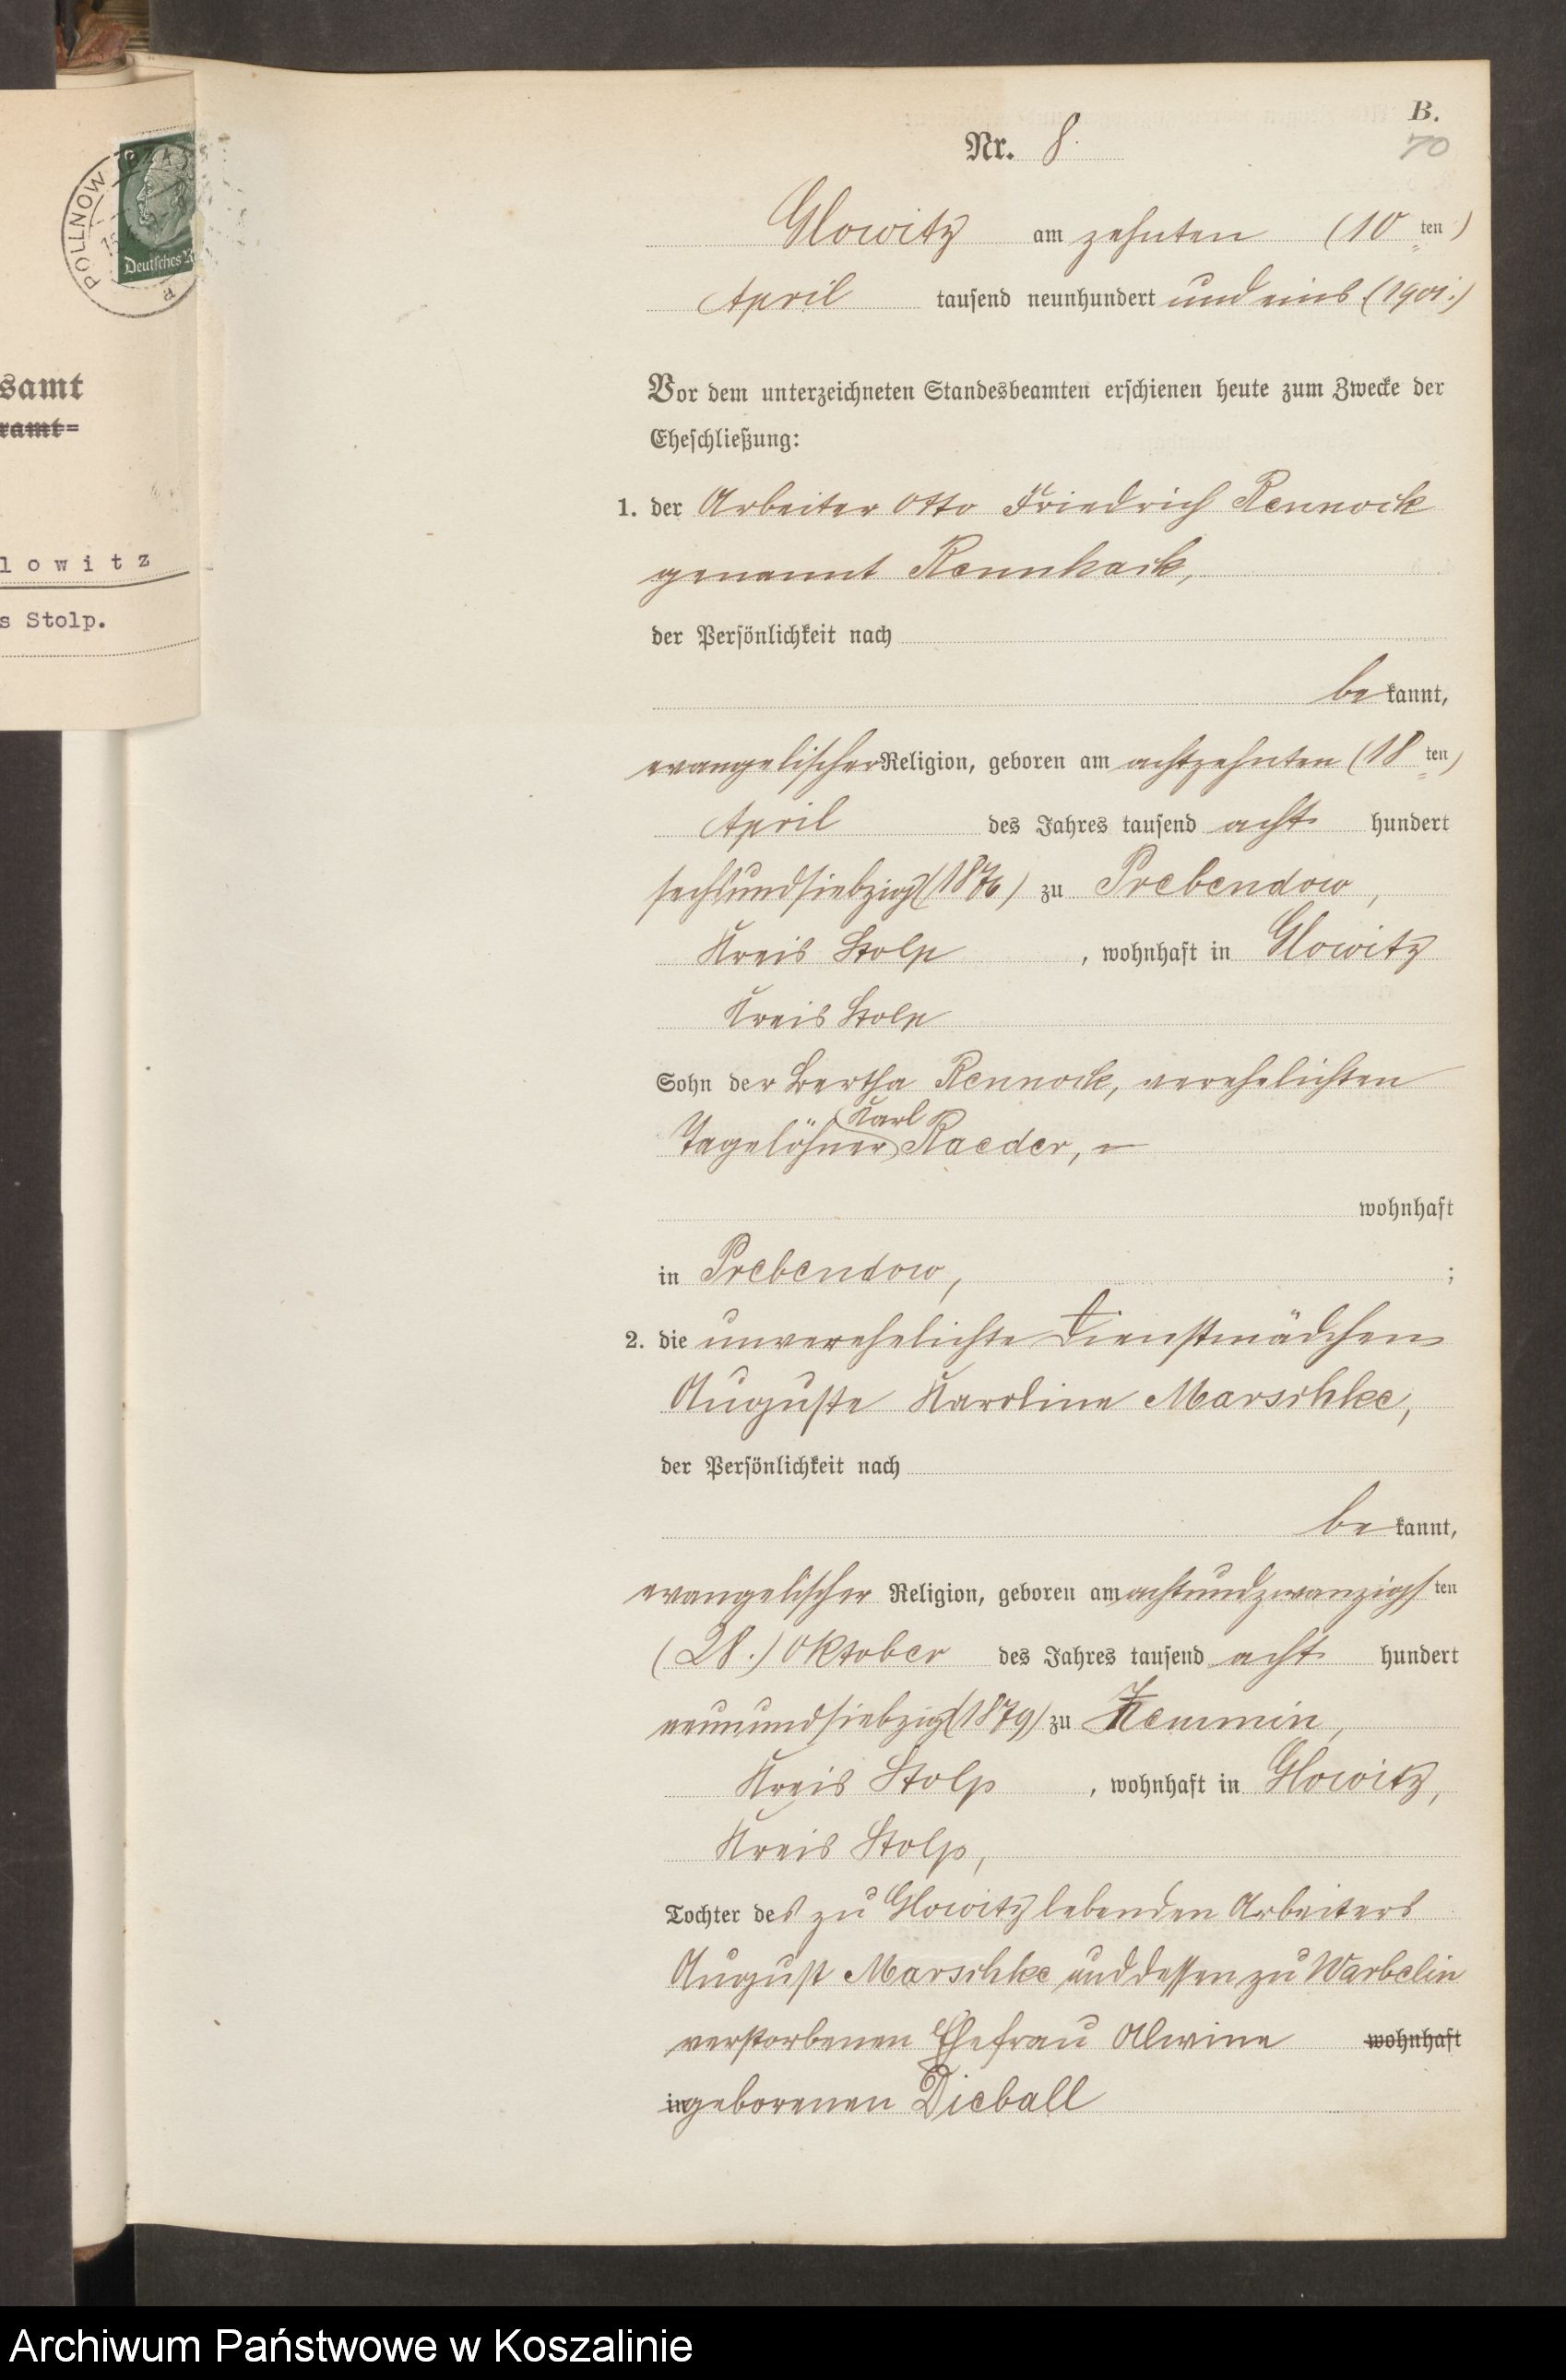 POLLNOW
Deutsches R
samt
ramt=
lowitz
s Stolp.
B.
70
Nr. 8.
Glowitz am zehnten (10 ten)
April tausend neunhundert und eins (1901.)
Vor dem unterzeichneten Standesbeamten erschienen heute zum Zwecke der
Eheschließung:
1. der Arbeiter Otto Friedrich Rennock
genannt Rennhack,
der Persönlichkeit nach
be kannt,
evangelischer Religion, geboren am achtzehnten (18 ten)
April des Jahres tausend acht hundert
sechsundsiebzig (1876) zu Prebendow,
Kreis Stolp, wohnhaft in Glowitz
Kreis Stolp
Sohn der Bertha Rennock, verehelichten
Karl
Tagelöhner Raeder,
wohnhaft
in Prebendow, ;
2. die unverehelichte Dienstmädchen
Auguste Karoline Marschke,
der Persönlichkeit nach
be kannt,
evangelischer Religion, geboren am achtundzwanzigsten
(28.) Oktober des Jahres tausend acht hundert
neunundsiebzig (1879) zu Zemmin,
Kreis Stolp, wohnhaft in Glowitz,
Kreis Stolp,
Tochter des zu Glowitz lebenden Arbeiters
August Marschke und dessen zu Warbelin
verstorbenen Ehefrau Alwine wohnhaft
in geborenen Dieball
Archiwum Państwowe w Koszalinie